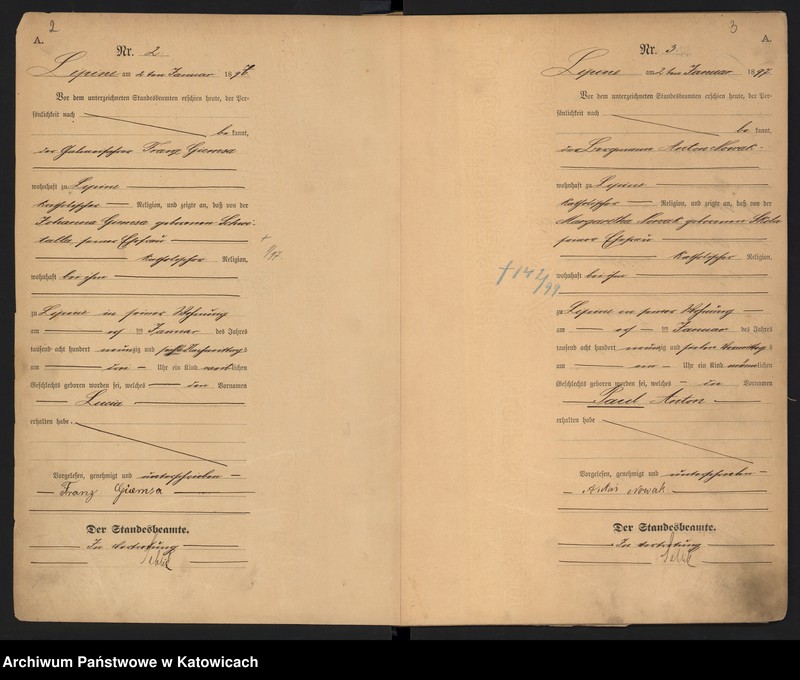 2
A.
Nr. 2
Lipine am 2 ten Januar 1897.
Vor dem unterzeichneten Standesbeamten erschien heute, der Per-
sönlichkeit nach
be kannt,
der Franz Giemsa
wohnhaft zu Lipine
katholischer Religion, und zeigte an, daß von der
Johanna Giemsa geborenen
seiner Ehefrau
katholischer Religion,
wohnhaft bei ihm
zu Lipine in seiner Wohnung
am ten Januar des Jahres
tausend acht hundert neunzig und
am Uhr ein Kind weiblichen
Geschlechts geboren worden sei, welches den Vornamen
Lucia
erhalten habe.
Vorgelesen, genehmigt und unterschrieben
Franz Giemsa
Der Standesbeamte.
In Vertretung
†
/97.
3
A.
Nr. 3
Lipine am 2 ten Januar 1897
Vor dem unterzeichneten Standesbeamten erschien heute, der Per-
sönlichkeit nach
be kannt,
der Bergmann Anton Nowak
wohnhaft zu Lipine
katholischer Religion, und zeigte an, daß von der
Margaretha Nowak geborenen
seiner Ehefrau
katholischer Religion,
wohnhaft bei ihm
† 142/99
zu Lipine in seiner Wohnung
am ten Januar des Jahres
tausend acht hundert neunzig und sieben Vormittags
am ein Uhr ein Kind männlichen
Geschlechts geboren worden sei, welches die Vornamen
Paul Anton
erhalten habe
Vorgelesen, genehmigt und unterschrieben
Nowak
Der Standesbeamte.
In Vertretung
Archiwum Państwowe w Katowicach